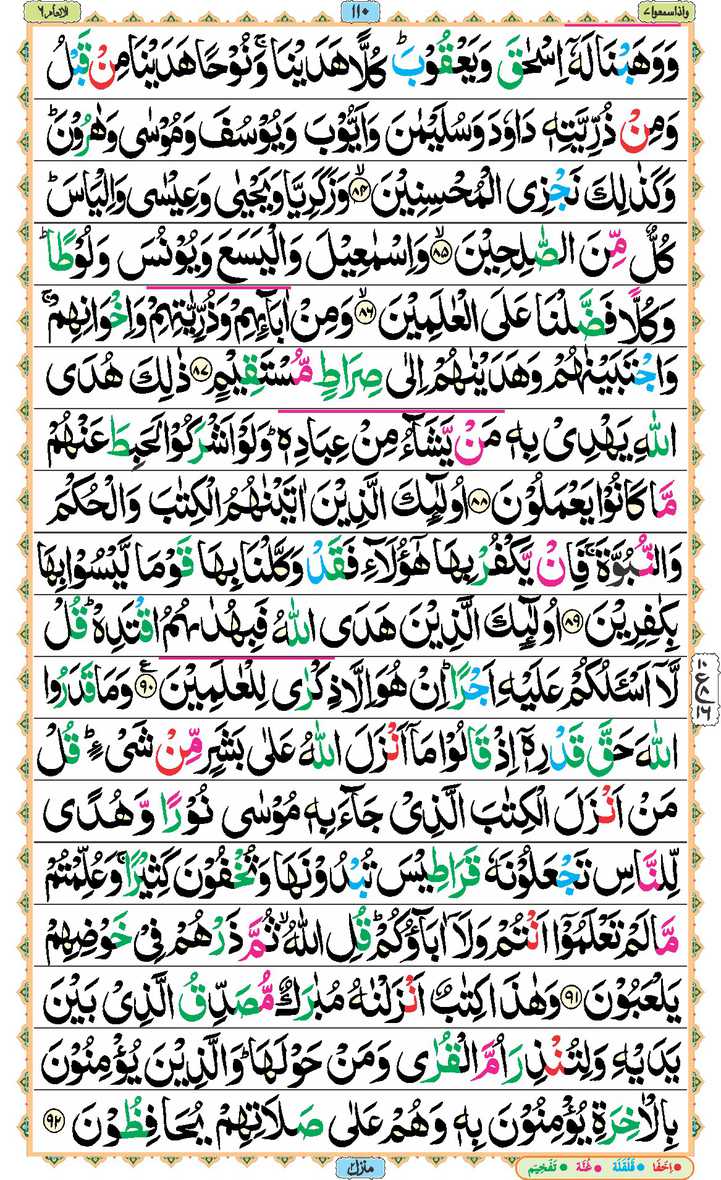 واذاسمعوا٧ ١١٠ الانعام٦
وَوَهَبْنَا لَهٗۤ اِسْحٰقَ وَيَعْقُوْبَؕ كُلًّا هَدَيْنَاۚ وَنُوْحًا هَدَيْنَا مِنْ قَبْلُ
وَمِنْ ذُرِّيَّتِهٖ دَاوٗدَ وَسُلَيْمٰنَ وَاَيُّوْبَ وَيُوْسُفَ وَمُوْسٰى وَهٰرُوْنَؕ
وَكَذٰلِكَ نَجْزِى الْمُحْسِنِيْنَۙ‏﴿۸۴﴾ وَزَكَرِيَّا وَيَحْيٰى وَعِيْسٰى وَاِلْيَاسَؕ
كُلٌّ مِّنَ الصّٰلِحِيْنَۙ‏﴿۸۵﴾ وَاِسْمٰعِيْلَ وَالْيَسَعَ وَيُوْنُسَ وَلُوْطًاؕ
وَكُلًّا فَضَّلْنَا عَلَى الْعٰلَمِيْنَۙ‏﴿۸۶﴾ وَمِنْ اٰبَآئِهِمْ وَذُرِّيّٰتِهِمْ وَاِخْوَانِهِمْۚ
وَاجْتَبَيْنٰهُمْ وَهَدَيْنٰهُمْ اِلٰى صِرَاطٍ مُّسْتَقِيْمٍ‏﴿۸۷﴾ ذٰلِكَ هُدَى
اللّٰهِ يَهْدِىْ بِهٖ مَنْ يَّشَآءُ مِنْ عِبَادِهٖؕ وَلَوْ اَشْرَكُوْا لَحَبِطَ عَنْهُمْ
مَّا كَانُوْا يَعْمَلُوْنَ‏﴿۸۸﴾ اُولٰٓئِكَ الَّذِيْنَ اٰتَيْنٰهُمُ الْكِتٰبَ وَالْحُكْمَ
وَالنُّبُوَّةَۚ فَاِنْ يَّكْفُرْ بِهَا هٰٓؤُلَآءِ فَقَدْ وَكَّلْنَا بِهَا قَوْمًا لَّيْسُوْا بِهَا
بِكٰفِرِيْنَ‏﴿۸۹﴾ اُولٰٓئِكَ الَّذِيْنَ هَدَى اللّٰهُ فَبِهُدٰىهُمُ اقْتَدِهْؕ قُلْ
لَّاۤ اَسْئَلُكُمْ عَلَيْهِ اَجْرًاؕ اِنْ هُوَ اِلَّا ذِكْرٰى لِلْعٰلَمِيْنَ‏﴿۹۰﴾ وَمَا قَدَرُوا
ع ١٠ ٨ ١٦
اللّٰهَ حَقَّ قَدْرِهٖۤ اِذْ قَالُوْا مَاۤ اَنْزَلَ اللّٰهُ عَلٰى بَشَرٍ مِّنْ شَىْءٍؕ قُلْ
مَنْ اَنْزَلَ الْكِتٰبَ الَّذِىْ جَآءَ بِهٖ مُوْسٰى نُوْرًا وَّهُدًى
لِّلنَّاسِ تَجْعَلُوْنَهٗ قَرَاطِيْسَ تُبْدُوْنَهَا وَتُخْفُوْنَ كَثِيْرًاۚ وَعُلِّمْتُمْ
مَّا لَمْ تَعْلَمُوْۤا اَنْتُمْ وَلَاۤ اٰبَآؤُكُمْؕ قُلِ اللّٰهُۙ ثُمَّ ذَرْهُمْ فِىْ خَوْضِهِمْ
يَلْعَبُوْنَ‏﴿۹۱﴾ وَهٰذَا كِتٰبٌ اَنْزَلْنٰهُ مُبٰرَكٌ مُّصَدِّقُ الَّذِىْ بَيْنَ
يَدَيْهِ وَلِتُنْذِرَ اُمَّ الْقُرٰى وَمَنْ حَوْلَهَاؕ وَالَّذِيْنَ يُؤْمِنُوْنَ
بِالْاٰخِرَةِ يُؤْمِنُوْنَ بِهٖ وَهُمْ عَلٰى صَلَاتِهِمْ يُحَافِظُوْنَ‏﴿۹۲﴾
منزل٢
اِخْفَا قَلْقَلَة غُنَّة تَفْخِيْم